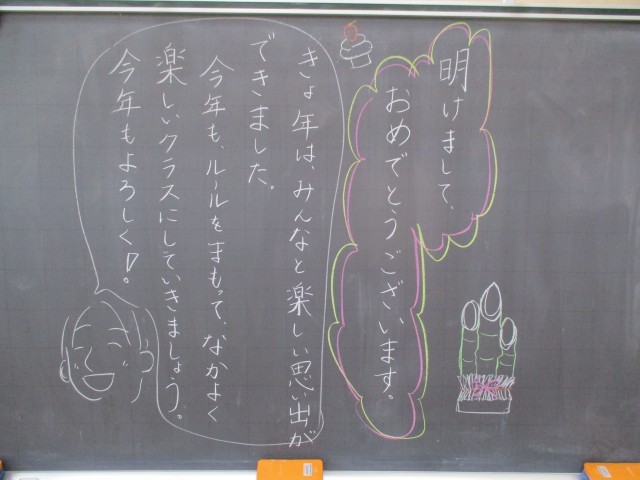 明けまして、
おめでとうございます。
きょ年は、みんなと楽しい思い出が
できました。
今年も、ルールをまもって、なかよく
楽しいクラスにしていきましょう。
今年もよろしく!。